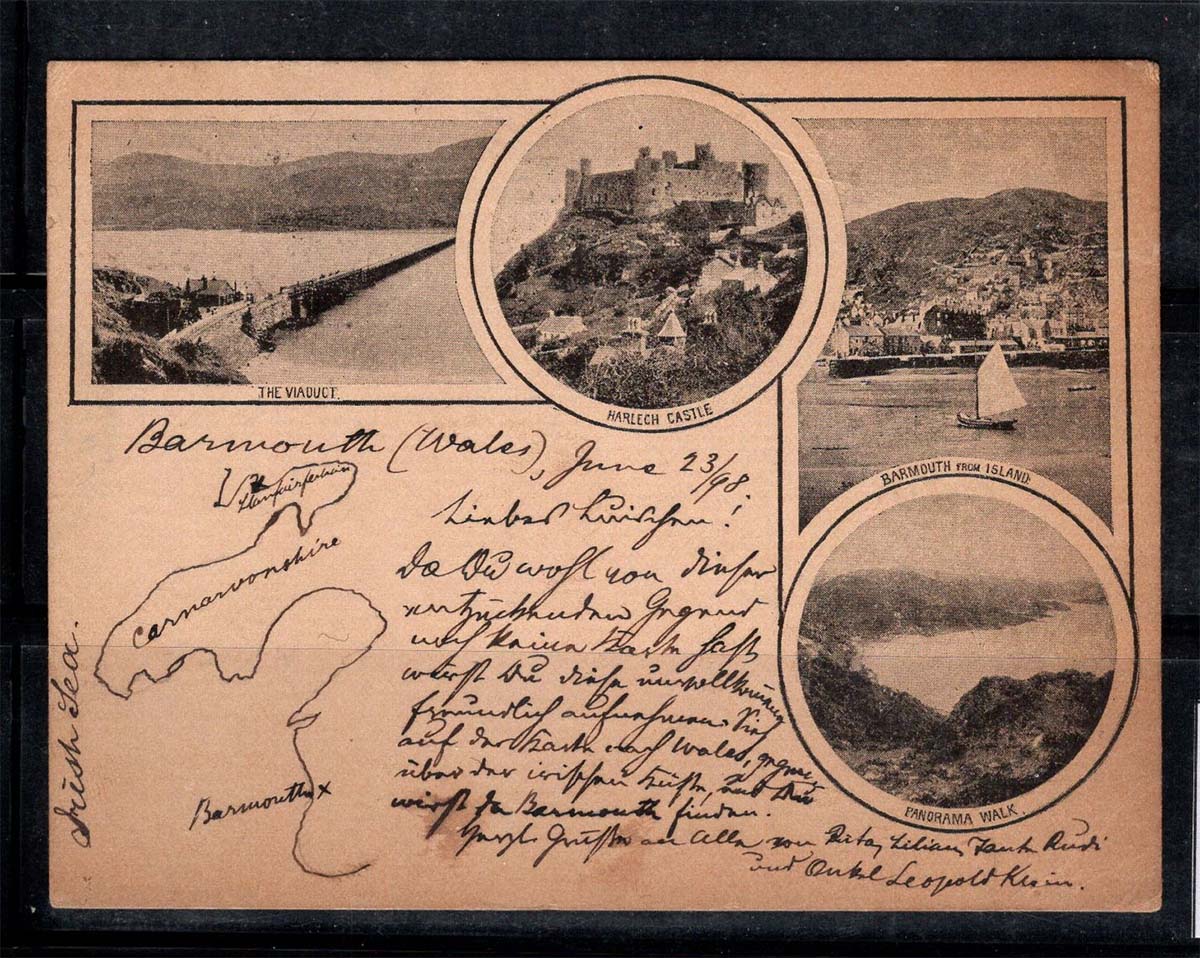 THE VIADUCT.
HARLECH CASTLE
BARMOUTH FROM ISLAND.
PANORAMA WALK.
Barmouth (Wales), June 23/98.
Liebes Luischen!
Da Du wohl von dieser
entzückenden Gegend
noch keine Karte hast
wirst Du diese
freundlich aufnehmen. Sieh
auf der Karte nach Wales, gegen
über der irischen Küste, und Du
wirst da Barmouth finden.
Herzl. Grüße an Alle von Rita, Lilian, Tante Rudi
und Onkel Leopold Klein.
Llanfairfechan
Carnarvonshire
Irish Sea.
Barmouth x